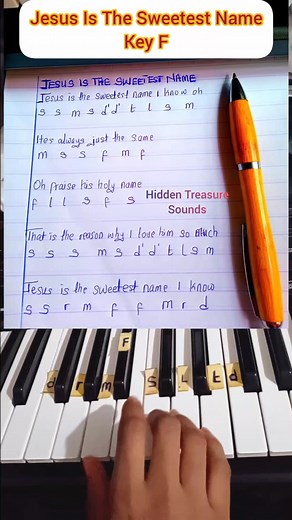 Jesus Is The Sweetest Name
Key F
JESUS IS THE SWEETEST NAME
Jesus is the sweetest name I know oh
s s m s d' d' t l s m
Hes always just the same
m s s f m f
Oh praise his holy name
f l l s f s
Hidden Treasure
Sounds
That is the reason why I love him so much
s s s m s d' d' t l s m
Jesus is the sweetest name I know
s s r m f f m r d
F
d r m S L t d